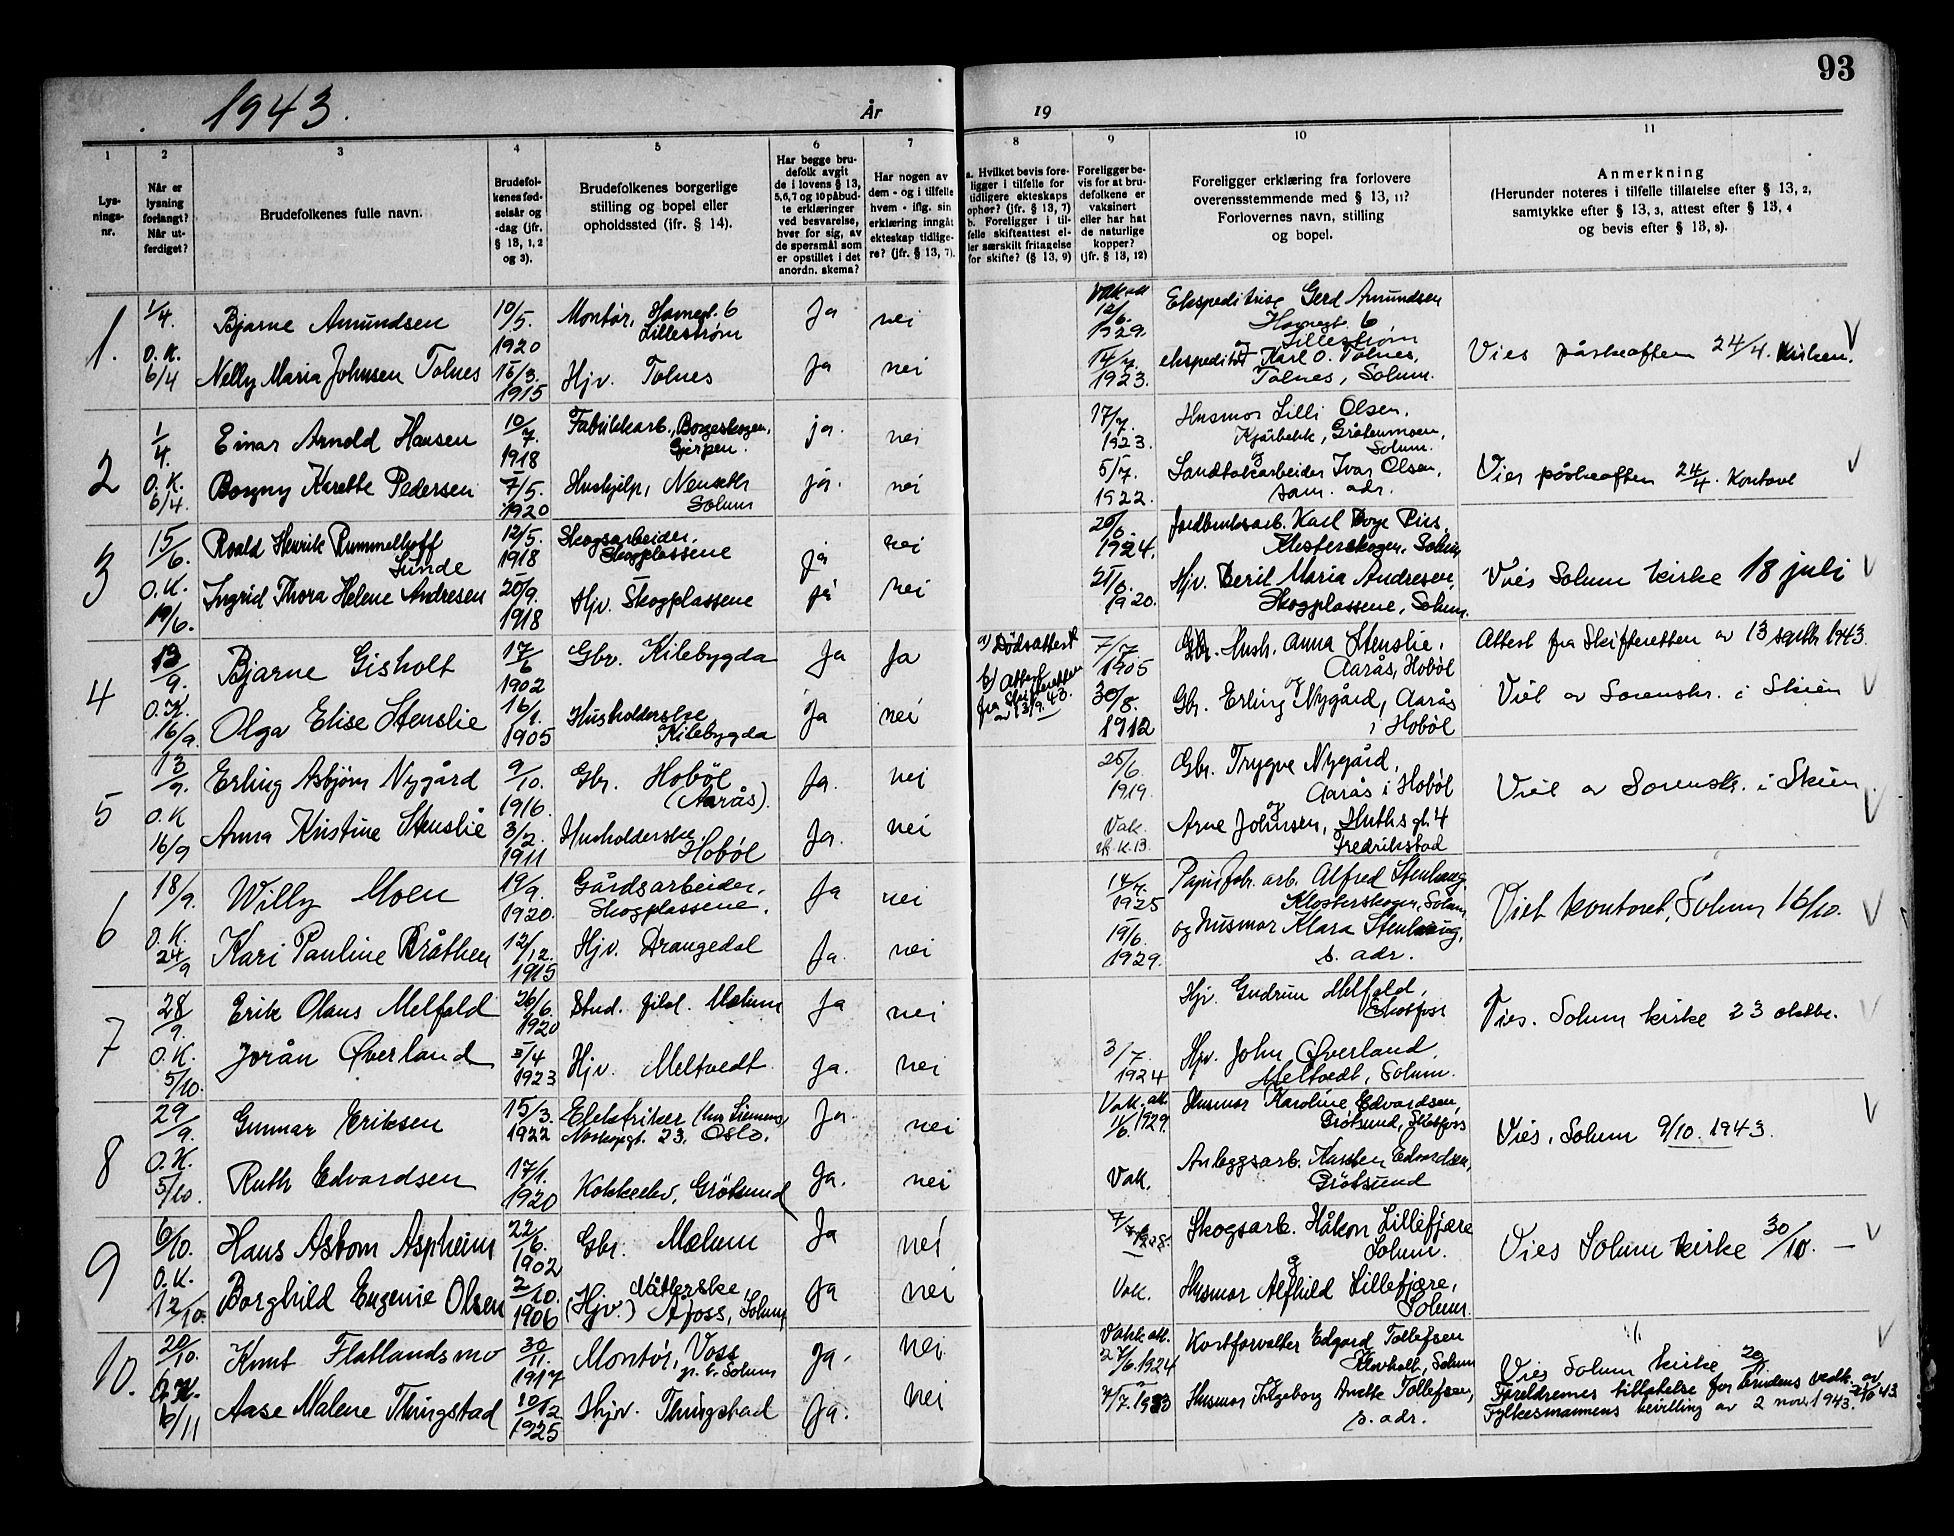 93
1943.
År
19
1
2
3
4
5
6
7
8
9
10
11
Lys-
nings-
nr.
Når er
lysning
forlangt?
Når ut-
ferdiget?
Brudefolkenes fulle navn.
Brudefol-
kenes fød-
selsår og
-dag (jfr.
§ 13, 1, 2
og 3).
Brudefolkenes borgerlige
stilling og bopel eller
opholdssted (jfr. § 14).
Har begge bru-
defolk avgit
de i lovens § 13,
5,6,7 og 10 påbud-
te erklæringer
ved besvarelse,
hver for sig, av
de spørsmål som
er opstillet i det
anordn. skema?
Har nogen av
dem - og i tilfelle
hvem - iflg. sin
erklæring inngått
ekteskap tidlige-
re? (jfr. § 13, 7).
a. Hvilket bevis fore-
ligger i tilfelle for
tidligere ekteskaps
ophør? (jfr. § 13, 7)
b. Foreligger i til-
felle skifteattest el-
ler særskilt fritagelse
for skifte? (§ 13, 9)
Foreligger be-
vis for at bru-
defolkene er
vaksinert
eller har hat
de naturlige
kopper?
(jfr. § 13, 12)
Foreligger erklæring fra forlovere
overensstemmende med § 13, 11?
Forlovernes navn, stilling
og bopel.
Anmerkning
(Herunder noteres i tilfelle tillatelse efter § 13, 2,
samtykke efter § 13, 3, attest efter § 13, 4
og bevis efter § 13, 8).
1.
1/4.
O.K.
6/4
Bjarne Amundsen
10/5.
1920
Montør, Havnegt. 6
Lillestrøm
Ja
nei
Vak.att
12/6.
1929.
Ekspeditrise Gerd Amundsen
Havnegt. 6
Lillestrøm
Nelly Maria Johnsen Tolnes
15/3.
1915
Hjv. Tolnes
Ja
nei
14/7.
1923.
ekspeditør Karl O. Tolnes,
Tolnes, Solum.
Vies påskeaften 24/4. Kirken.
2
1/4.
O.K.
6/4.
Einar Arnold Hansen
10/7.
1918
Fabrikkarb., Borgeskogen,
Gjerpen.
ja.
nei
17/7.
1923.
Husmor Lilli Olsen,
Kjærbekk, Gråtenmoen,
Solum.
Borgny Karette Pedersen
7/5.
1920
Hushjelp, Nenseth
Solum
ja.
nei
5/7.
1922.
og
Ivar Olsen,
sam. adr.
Vies påskeaften 24/4. Kontoret
3
15/6.
O.K.
19/6.
Roald Henrik Rummelhoff
Sunde
12/5.
1918
Skogsarbeider,
Skogplassene
ja
nei
1924.
Jordbruksarb. Karl
Klosterskogen, Solum
Ingrid Thora Helene Andresen
20/9.
1918
Hjv. Skogplassene
ja
nei
1920.
Hjv. Beril Maria Andresen,
Skogplassene, Solum.
Vies Solum kirke 18 juli
4
13/9.
O.K.
16/9.
Bjarne Gisholt
17/6
1902
Gbr. Kilebygda
Ja
Ja
a) Dødsattest
b) Attest
fra Skifteretten
av 13/9.43.
7/7.
1905
Anna Stenslie,
Aarås, Hobøl
Attest fra Skifteretten av 13 septb. 1943.
Olga Elise Stenslie
16/1.
1905
Husholderske,
Kilebygda
Ja
nei
30/8.
1912
og
Gbr. Erling Nygård, Aarås
i Hobøl
Viel av Sorenskr. i Skien
5
13/9.
O.K
16/9
Erling Asbjørn Nygård
9/10.
1916.
Gbr. Hobøl
(Aarås).
Ja.
nei
25/6.
1919.
Gbr. Trygve Nygård,
Aarås i Hobøl
Anna Kristine Stenslie
3/2.
1911
Husholderske
Hobøl
Ja.
nei
Vak.
og
Arne Johnsen, Huths gt. 4
Fredrikstad
Viel av Sorenskr. i Skien
6
18/9.
O.K.
24/9
Willy Moen
19/9.
1920.
Gårdsarbeider,
Skogplassene.
Ja
nei
14/7.
1925
Papirfabr. arb. Alfred Stenhaug
Klosterskogen, Solum
Kari Pauline Bråthen
12/12.
1915
Hjv. Drangedal
Ja.
nei
19/6.
1929.
og husmor Klara Stenhaug,
s. adr.
Viet kontoret, Solum 16/10.
7
28/9.
O.K.
5/10.
Erik Olaus Melfald
26/6.
1920
Stud. filol. Mælum
Ja
nei
Hjv. Gudrun Melfald,
Skotfoss
Jorån Øverland
3/4
1923
Hjv. Meltvedt
Ja.
nei
3/7.
1924
John Øverland
Meltvedt, Solum.
Vies. Solum kirke 23 oktbr.
8
29/9.
O.K.
5/10.
Gunnar Eriksen
15/3.
1922
Elektriker (hos Siemens)
23, Oslo.
Ja
nei
Vak. att.
11/6. 1929.
Husmor Karoline Edvardsen,
Grötsund, Skotfoss
Ruth Edvardsen
17/1.
1920
Kokkeelev, Grötsund
Ja.
nei
Vak.
Anleggsarb. Karsten Edvardsen,
Grötsund
Vies, Solum 9/10. 1943.
9
6/10.
O.K.
12/10.
Hans Astrom Aspheim
22/6.
1902
Gbr. Mælum
Ja
nei
Skogsarb. Håkon Lillefjære
Solum.
og
Borghild Eugenie Olsen
2/10.
1906
Nätterske,
(Hjv.) Åfoss, Solum
Ja
nei
Vak.
Husmor Alfhild Lillefjære,
Solum.
Vies Solum kirke 30/10. —
10.
20/10.
O.K.
6/11
Knut Flatlandsmo
30/11.
1917
Montør, Voss
p.t. Solum
Ja.
nei
Vakk. att.
27/6.1924
Kortforvalter Edgard Tollefsen
Klovholt, Solum
Aase Malene Thingstad
10/12
1925
Hjv. Thingstad
Ja.
nei
7/7.1933
Husmor Ingeborg Anette Tollefsen,
s. adr.
Vies Solum kirke 20/11.
Foreldrenes tillatelse for brudens vedk. av
Fylkesmannens bevilling av 2 novbr 1943.